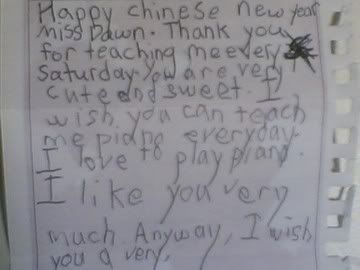 Happy chinese new year
Miss Dawn. Thank you
for teaching me every
Saturday. You are very
cute and sweet. I
wish you can teach
me piano everyday.
I love to play piano.
I like you very
much. Anyway, I wish
you a very,